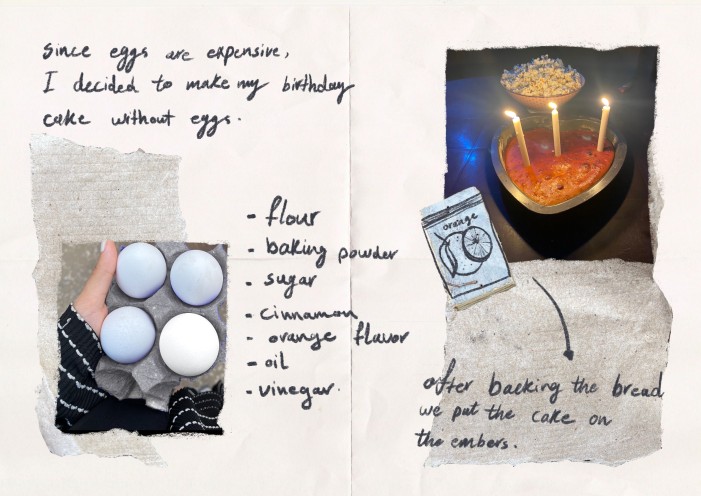 Since eggs are expensive,
I decided to make my birthday
cake without eggs.
- flour
- baking powder
- sugar
- cinnamon
- orange flavor
- oil
- vinegar.
orange
after backing the bread
we put the cake on
the embers.